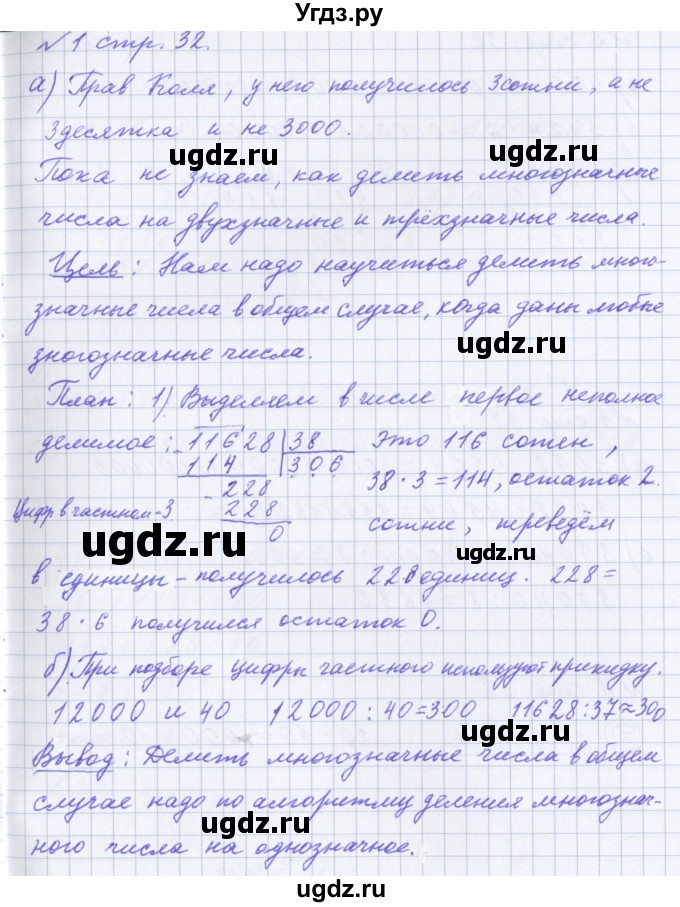 Угдз.ру
№1 стр. 32.
а) Прав Коля, у него получилось 3 сотни, а не
3 десятка и не 3000.
ugdz.ru ugdz.ru
Пока не знаем, как делить многозначные
числа на двухзначные и трёхзначные числа.
Цель: Нам надо научиться делить много-
значные числа в общем случае, когда даны любые
зногозначные числа.
ugdz.ru
План: 1) Выделяем в числе первое неполное
делимое: 11628 38 Это 116 сотен,
114 306 38·3=114, остаток 2.
-228
Цифр в частном-3 228 сотни, переведём
0
ugdz.ru ugdz.ru
в единицы - получилось 228 единиц. 228=
38·6 получился остаток 0.
ugdz.ru
б) При подборе цифры частного используют прикидку.
12000 и 40 12000:40=300 11628:37≈300
ugdz.ru
Вывод: Делить многозначные числа в общем
случае надо по алгоритму деления многознач-
ugdz.ru ugdz.ru
ного числа на однозначное.
ugdz.ru